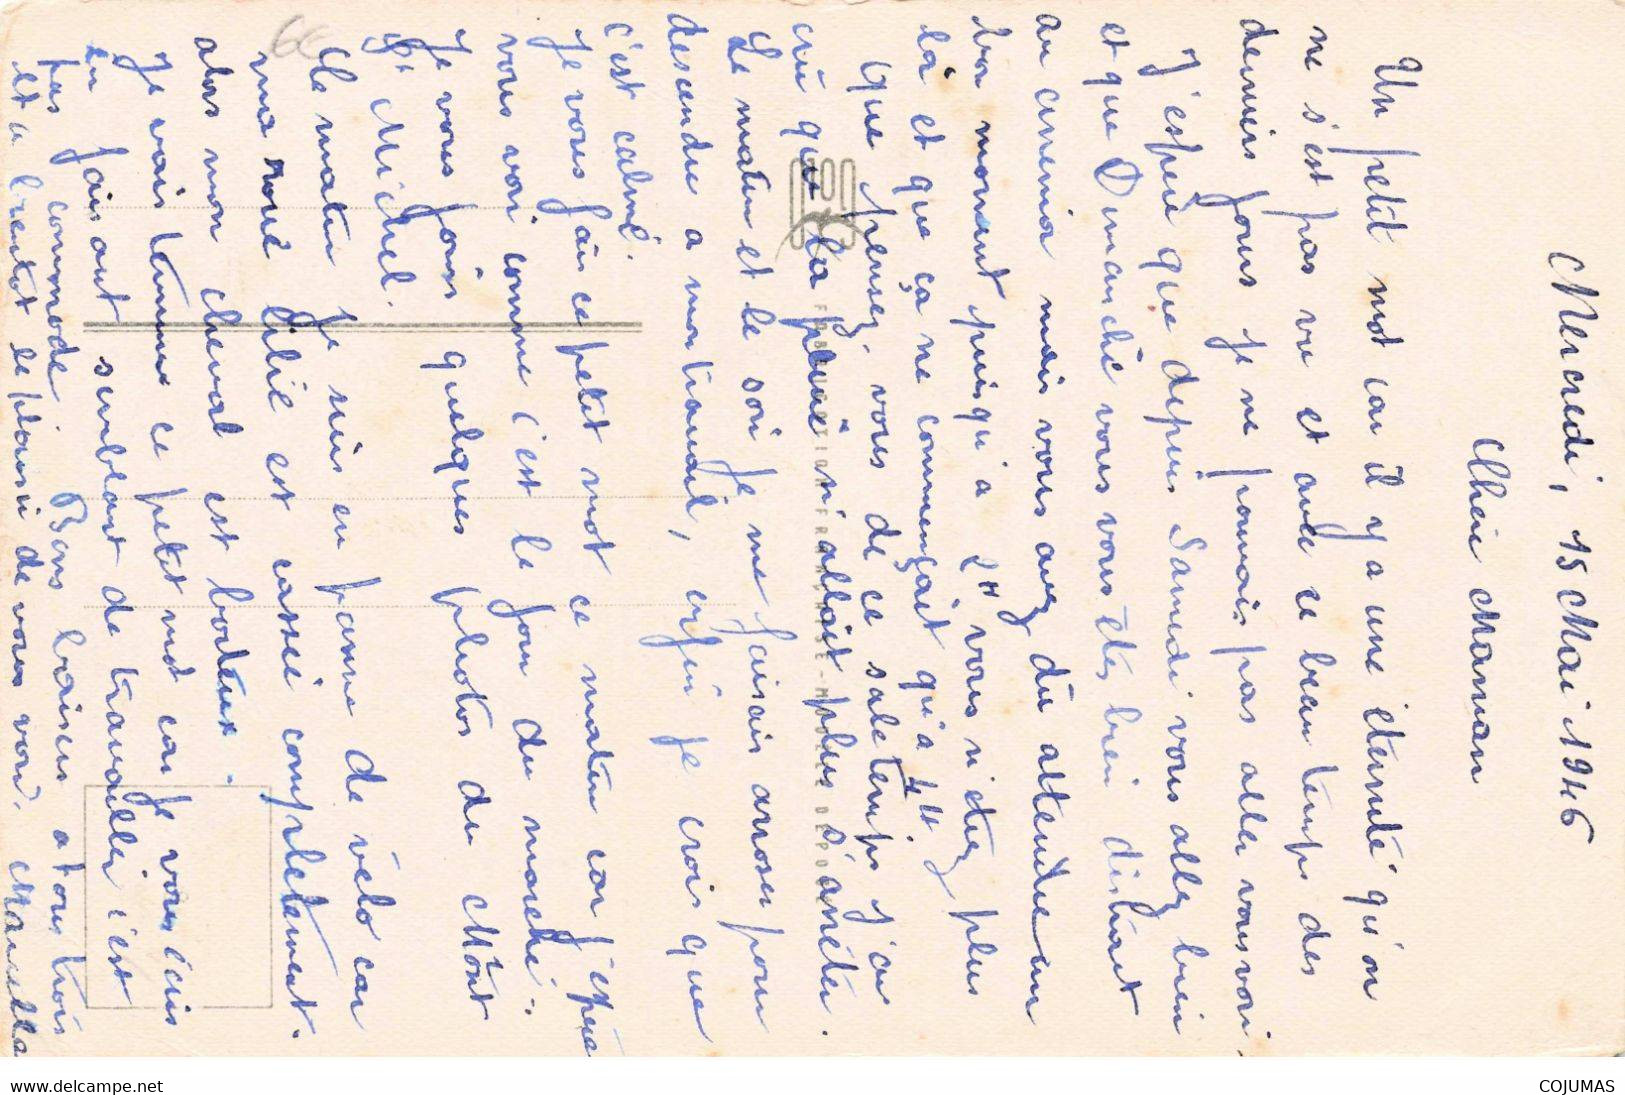 Mercredi, 15 Mai 1946
Chère Maman
Un petit mot car il y a une éternité qu'on
ne s'est pas vu et avec ce beau temps des
derniers jours je ne pouvais pas aller vous voir.
J'espère que depuis Samedi vous allez bien
et que Dimanche vous vous êtes bien distrait
au cinéma mais vous avez dû attendre un
bon moment puisqu'à 2H vous n'étiez plus
là et que ça ne commençait qu'à 4H.
Que pensez-vous de ce sale temps j'ai
crû que la pluie n'allait plus s'arrêter.
Le matin et le soir je me faisais arroser pour
descendre à mon travail, enfin je crois que
c'est calmé.
Je vous fais ce petit mot ce matin car j'espère
vous voir comme c'est le jour du marché.
Je vous joins quelques photos du Mont
St Michel.
Ce matin je suis en panne de vélo car
ma roue libre est cassé complètement.
alors mon cheval est boiteux.
Je vais terminer ce petit mot car je vous écris
en faisant semblant de travailler c'est
pas commode. Bons baisers à tous trois
et à bientôt le plaisir de vous voir. Marcelle
FABRICATION FRANÇAISE - MODÈLE DÉPOSÉ
delcampe.net
COJUMAS